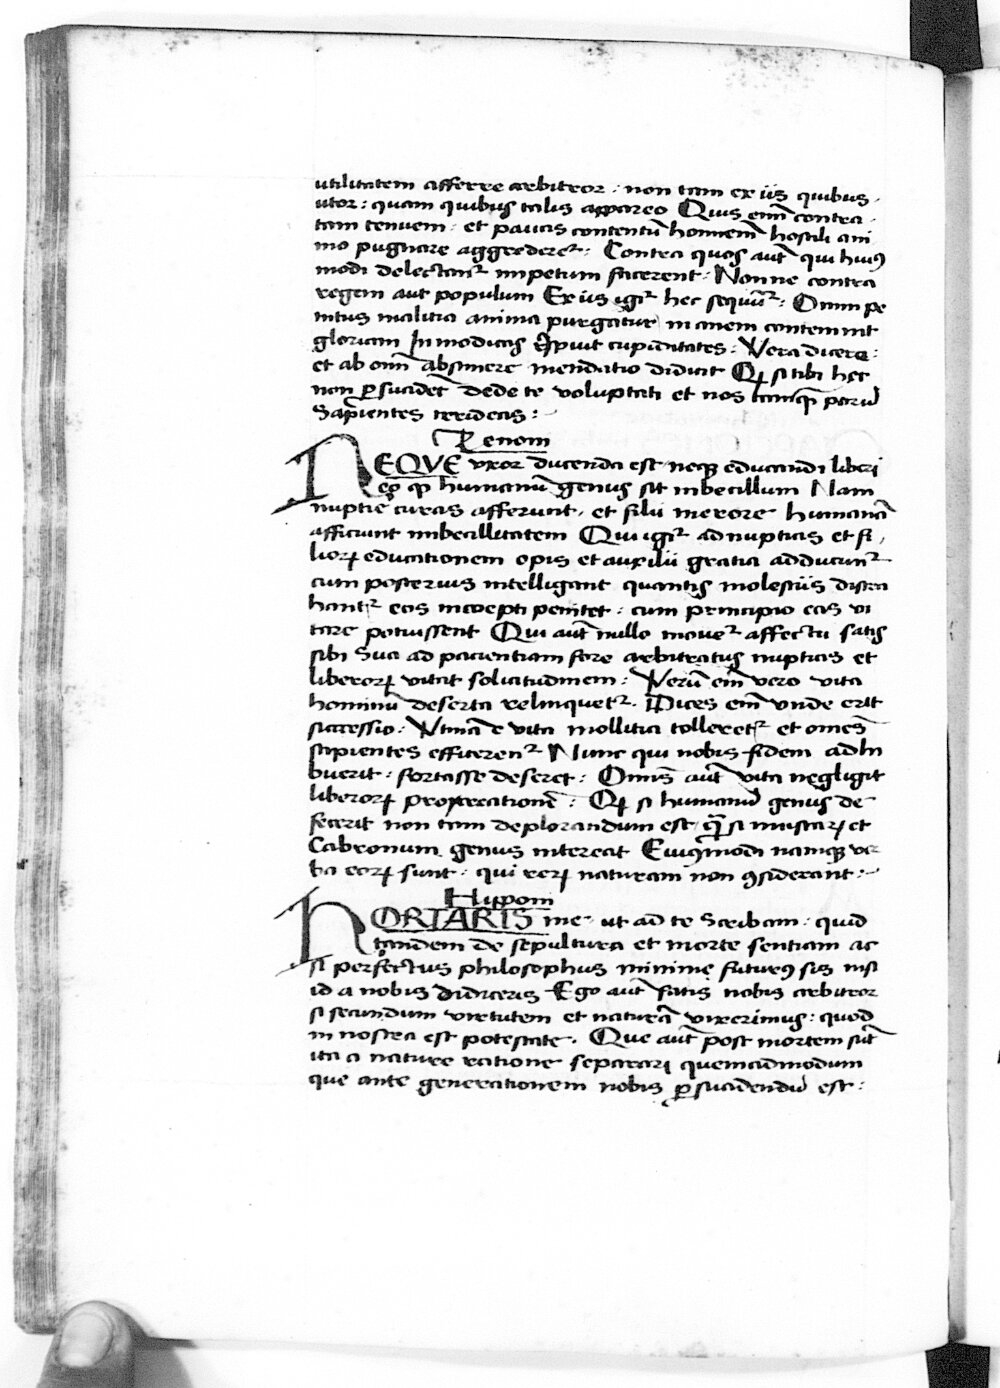 utilitatem afferre arbitror : non tam ex iis quibus ·
utor : quam quibus talis appareo Quis enī contra ·
tam tenuem · et paucis contentū hominem hostili ani
mo pugnare aggrederet᷑ · Contra quos aut̄ qui huiꝰ
modi delectant᷑ impetum facerent : Nonne contra
regem aut populum Ex iis igit᷑ hec sequūt᷑ : Omni pe
nitus malitia anima purgatur inanem contemnit
gloriam Inmodicas respuit cupiditates : Vera dicere :
et ab omī abstinere mendatio didicit Qꝫ si tibi hec
non ꝑsuadet̄ dede te voluptati et nos tanqꝫ parū
Sapientes irrideas : ~
Zenoni
NEQVE vxor ducenda est neqꝫ educandi liberi
eo qꝫ humanū genus sit inbecillum Nam
nuptie curas afferunt · et filii merore humanā
afficiunt imbecillitatem Qui igit᷑ ad nuptias et fi ·
lioꝝ educationem opis et auxilii gratia adducunt᷑
cum posterius intelligant quantis molestiis distra
hant᷑ eos incoepti penitet : cum principio eas vi
tare potuissent Qui aut̄ nullo mouet᷑ affectu satis
sibi Sua ad pacientiam fore arbitratus nuptias et
liberoꝝ vitat solicitudinem : Verū enī vero vita
hominū deserta relinquet᷑ · Dices enī vnde erit
successio : Vtinā e vita mollitia tolleret᷑ et omēs
sapientes efficerent᷑ Nunc qui nobis fidem adhi
buerit : fortasse deseret : Omīs aut̄ vita negligit
liberoꝝ procreationē : Qꝫ si humanū genus de
fecerit non tam deplorandum est qꝫ si muscaꝝ et
Cabronum genus intereat Eiusmodi namqꝫ ver
ba eoꝝ sunt : qui reꝝ naturam non ꝯsiderant : ~
Hipponi
HORTARIS me · ut ad te Scribam : quid
tandem de sepultura et morte sentiam ac
si perfectus philosophus minime futurꝰ sis nisi
id a nobis didiceris Ego aut̄ satis nobis arbitror
si secundum virtutem et naturā vixerimus : quod
in nostra est potestate · Que aut̄ post mortem sūt
ita a nature ratione separari quemadmodum
que ante generationem nobis ꝑsuadendū est :